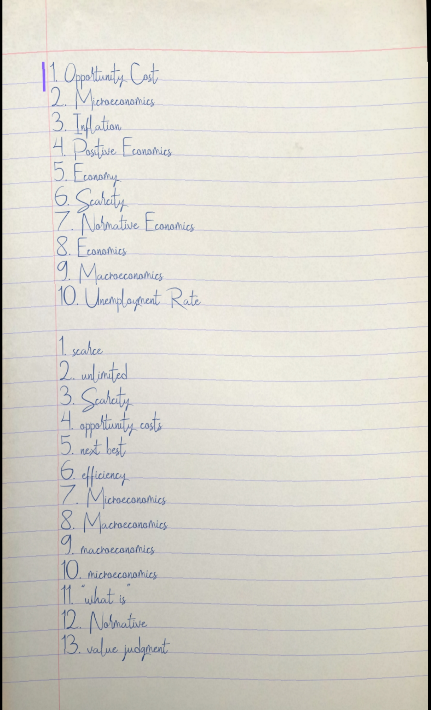 1. Opportunity Cost
2. Microeconomics
3. Inflation
4. Positive Economics
5. Economy
6. Scarcity
7. Normative Economics
8. Economics
9. Macroeconomics
10. Unemployment Rate
1. scarce
2. unlimited
3. Scarcity
4. opportunity costs
5. next best
6. efficiency
7. Microeconomics
8. Macroeconomics
9. macroeconomics
10. microeconomics
11. "what is"
12. Normative
13. value judgment